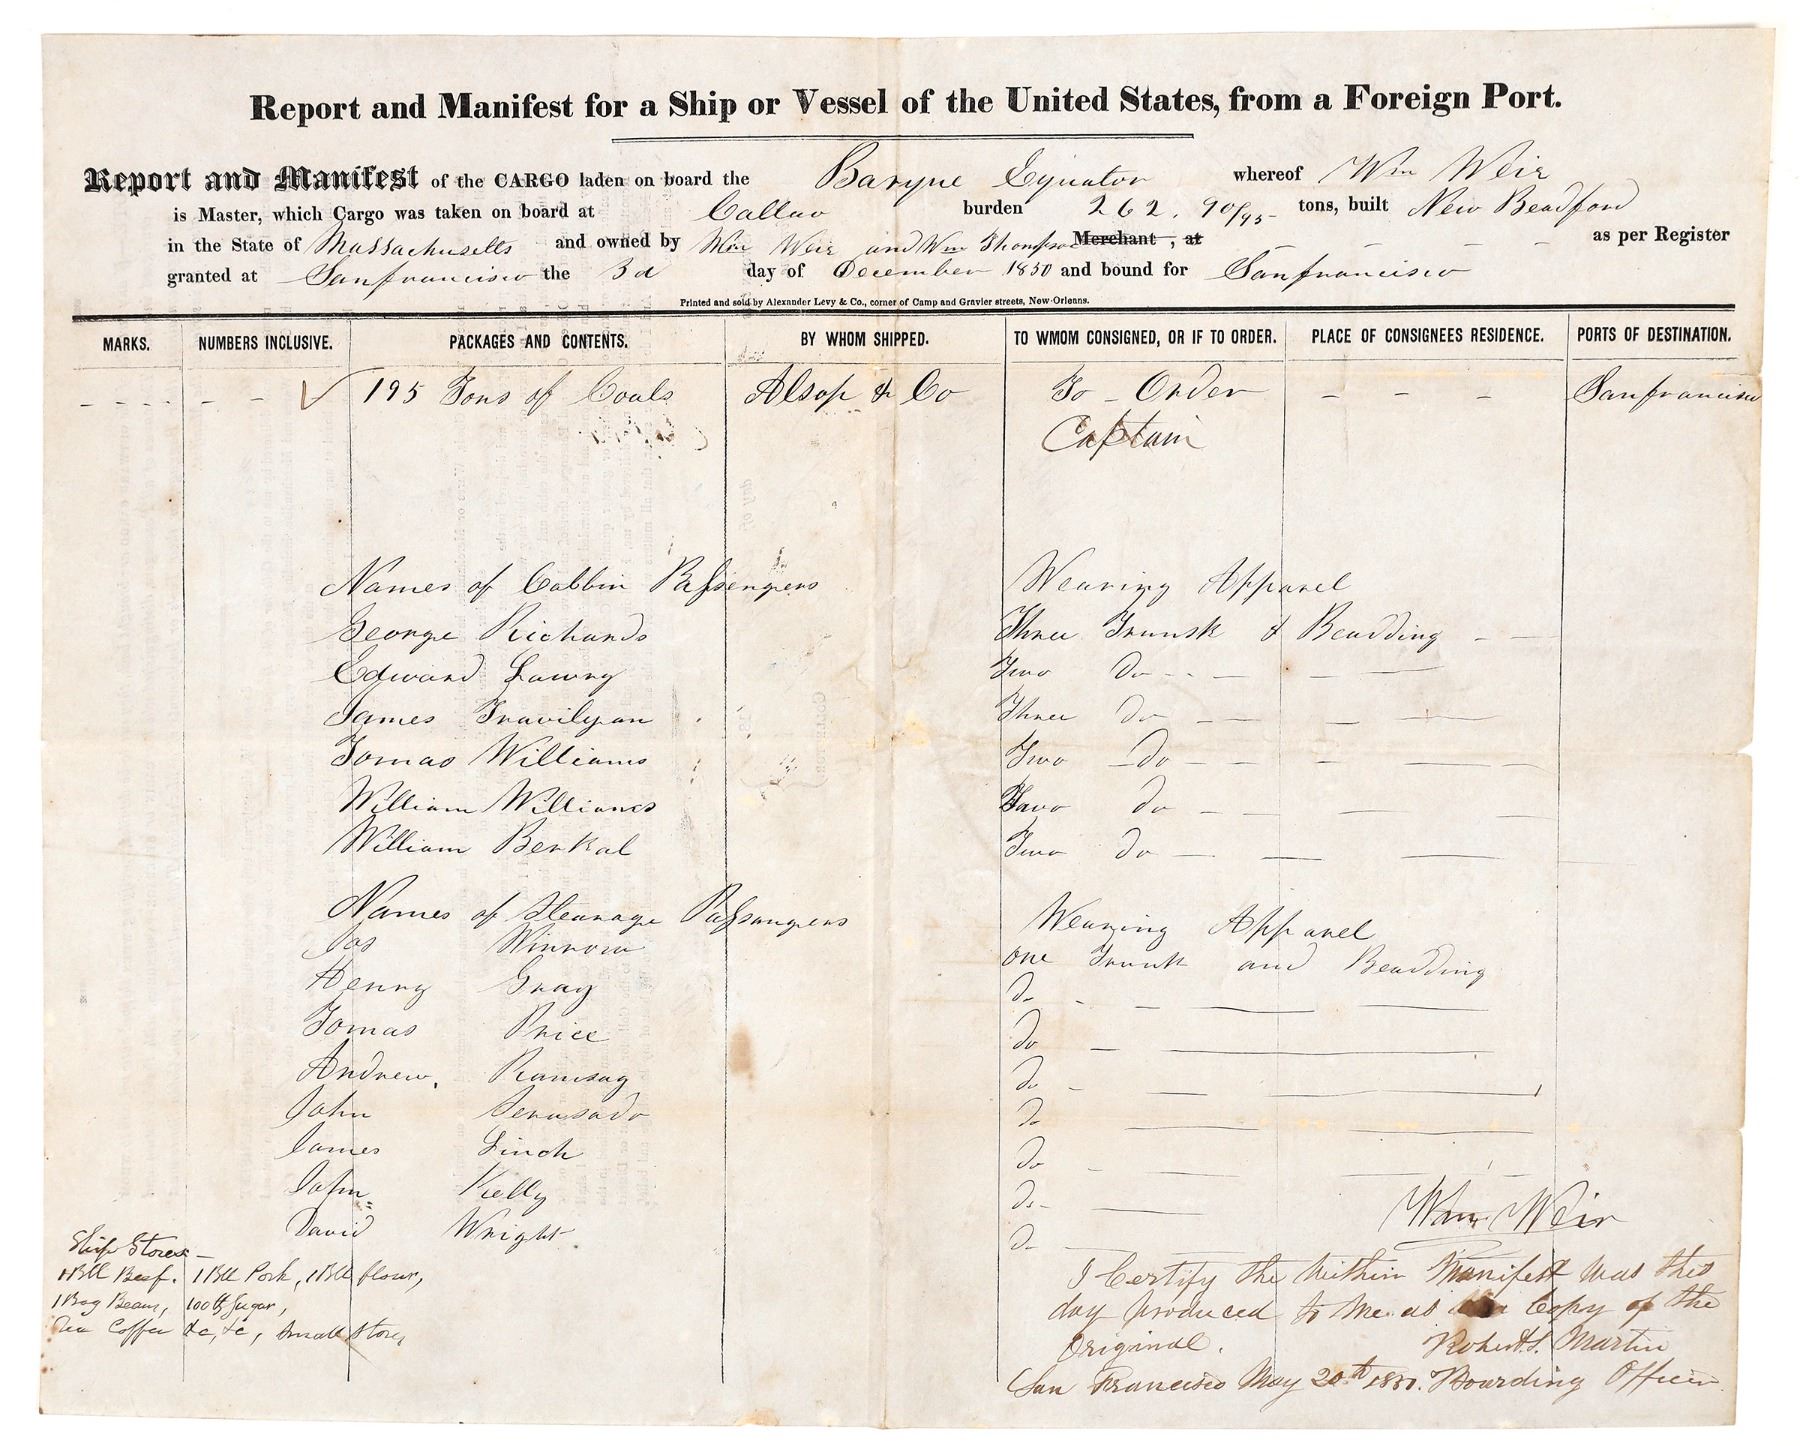 Report and Manifest for a Ship or Vessel of the United States, from a Foreign Port.
Report and Manifest of the CARGO laden on board the Barque Equator whereof Wm Weir
is Master, which Cargo was taken on board at Callao burden 262. 90/95 tons, built New Beadford
in the State of Massachusetts and owned by Wm Weir and Wm Thompson Merchant, at - - - - as per Register
granted at Sanfrancisco the 3d day of December 1850 and bound for Sanfrancisco
Printed and sold by Alexander Levy & Co., corner of Camp and Gravier streets, New-Orleans.
MARKS. NUMBERS INCLUSIVE. PACKAGES AND CONTENTS. BY WHOM SHIPPED. TO WMOM CONSIGNED, OR IF TO ORDER. PLACE OF CONSIGNEES RESIDENCE. PORTS OF DESTINATION.
- - - - - - ✓ 195 Tons of Coals Alsop & Co To - Order - - - Sanfrancisco
Captain
Names of Cabbin Passengers Wearing Apparel
George Richards Three Trunsk & Beadding - -
Edward Lawry Two Do - - - - -
James Travilyan Three Do - - - -
Tomas Williams Two - Do - - - -
William Williams Two Do - - - -
William Berkal Two Do - - -
Names of Stearage Passangers Wearing Apparel
Jas Winrow one Trunk and Beadding
Henny Gray Do - - - -
Tomas Price Do - -
Andrew. Ramsay Do - -
John Do - -
James Linch Do - - -
John Kelly Do - -
David Wright. Do -
Wm Weir
Ship Stores -
1 Bll Beef. 1 Bll Pork, 1 Bll flour,
1 Bag Beans, 100 lb Sugar,
Tea Coffee &c, &c, Small Stores,
I Certify the within Manifest was this
day produced to me as a Copy of the
Original. Robert S. Martin
San Francisco May 20th 1851. Boarding Officer